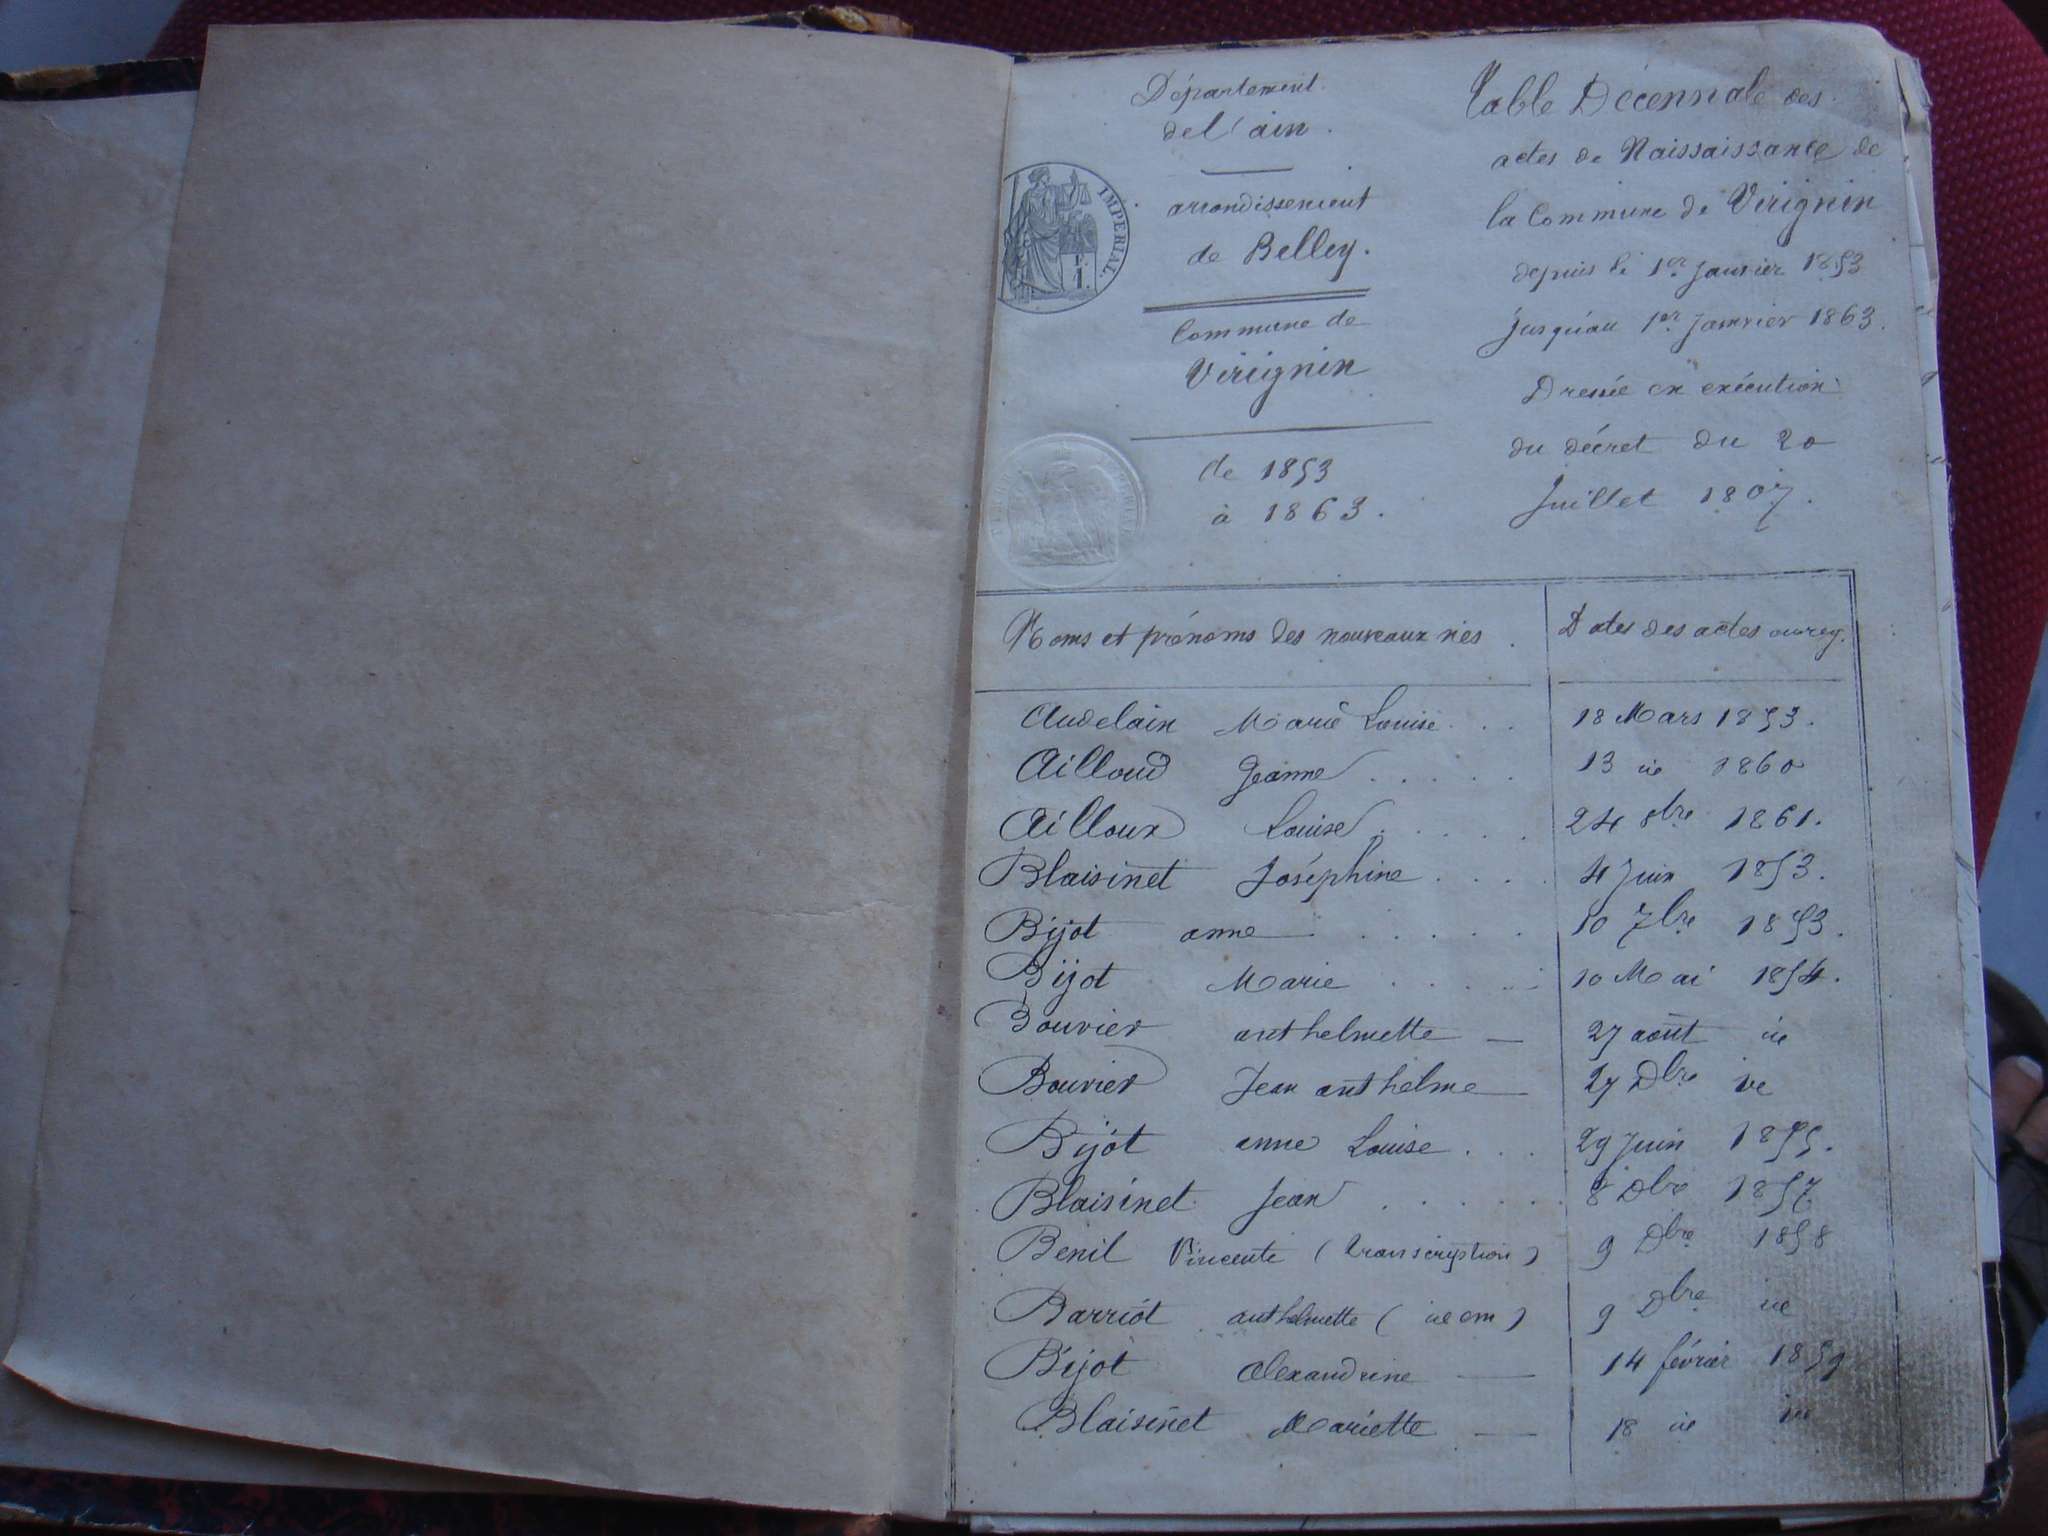 Département
de l'ain.
IMPERIAL.
1.
arrondissement
de Belley.
Commune de
Virignin
de 1853
à 1863.
Table Décennale des
actes de Naissaissance de
la Commune de Virignin
depuis le 1er Janvier 1853
jusqu'au 1er Janvier 1863.
Dressée en exécution
du décret du 20
Juillet 1807.
Noms et prénoms des nouveaux nés. Dates des actes au reg.
Audelain Marie Louise... 18 Mars 1853.
Ailloud Jeanne..... 13 id 1860
Ailloux Louise..... 24 8bre 1861.
Blaisinet Joséphine.... 4 Juin 1853.
Bijot anne..... 10 7bre 1853.
Bijot Marie..... 10 Mai 1854.
Bouvier anthelmette — 27 août id
Bouvier Jean anthelme — 27 Dbre id
Bijot anne Louise... 29 Juin 1855.
Blaisinet Jean..... 8 Dbre 1857
Benil Vincente (transcription) 9 Dbre 1858
Barriot anthelmette (idem) 9 Dbre id
Bijot Alexandrine — 14 février 1859
Blaisinet Mariette — 18 id id